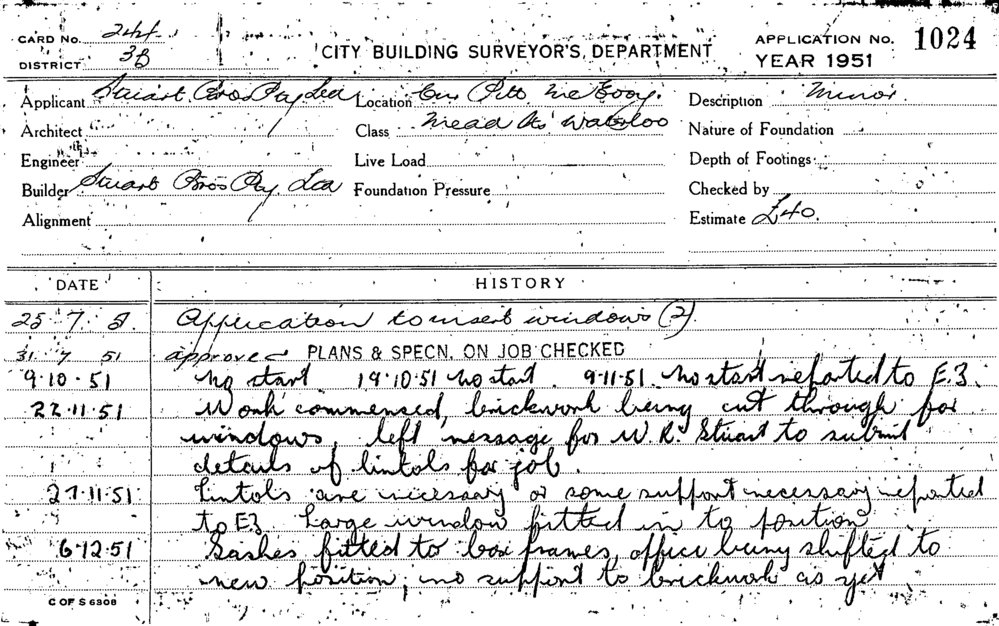 CARD No. 244
DISTRICT 3B
CITY BUILDING SURVEYOR'S DEPARTMENT
APPLICATION No. 1024
YEAR 1951
Applicant Stuart Bros Pty Ltd
Location Cnr Pitt McEvoy
Description Minor
Architect
Class Mead Sts Waterloo
Nature of Foundation
Engineer
Live Load
Depth of Footings
Builder Stuart Bros Pty Ltd
Foundation Pressure
Checked by
Alignment
Estimate £40.
DATE
HISTORY
25 7 51 Application to insert windows (2)
31 7 51 approved PLANS & SPECN. ON JOB CHECKED
9·10·51 No start 19·10·51 No start. 9·11·51. No start reported to E.3.
22·11·51 Work commensed, brickwork being cut through for
windows, left message for W. R. Stuart to submit
details of lintols for job.
27·11·51 Lintols are necessary or some support necessary reported
to E3. Large window fitted in to position
6·12·51 Sashes fitted to box frames, office being shifted to
new position, no support to brickwork as yet
C OF S 6308